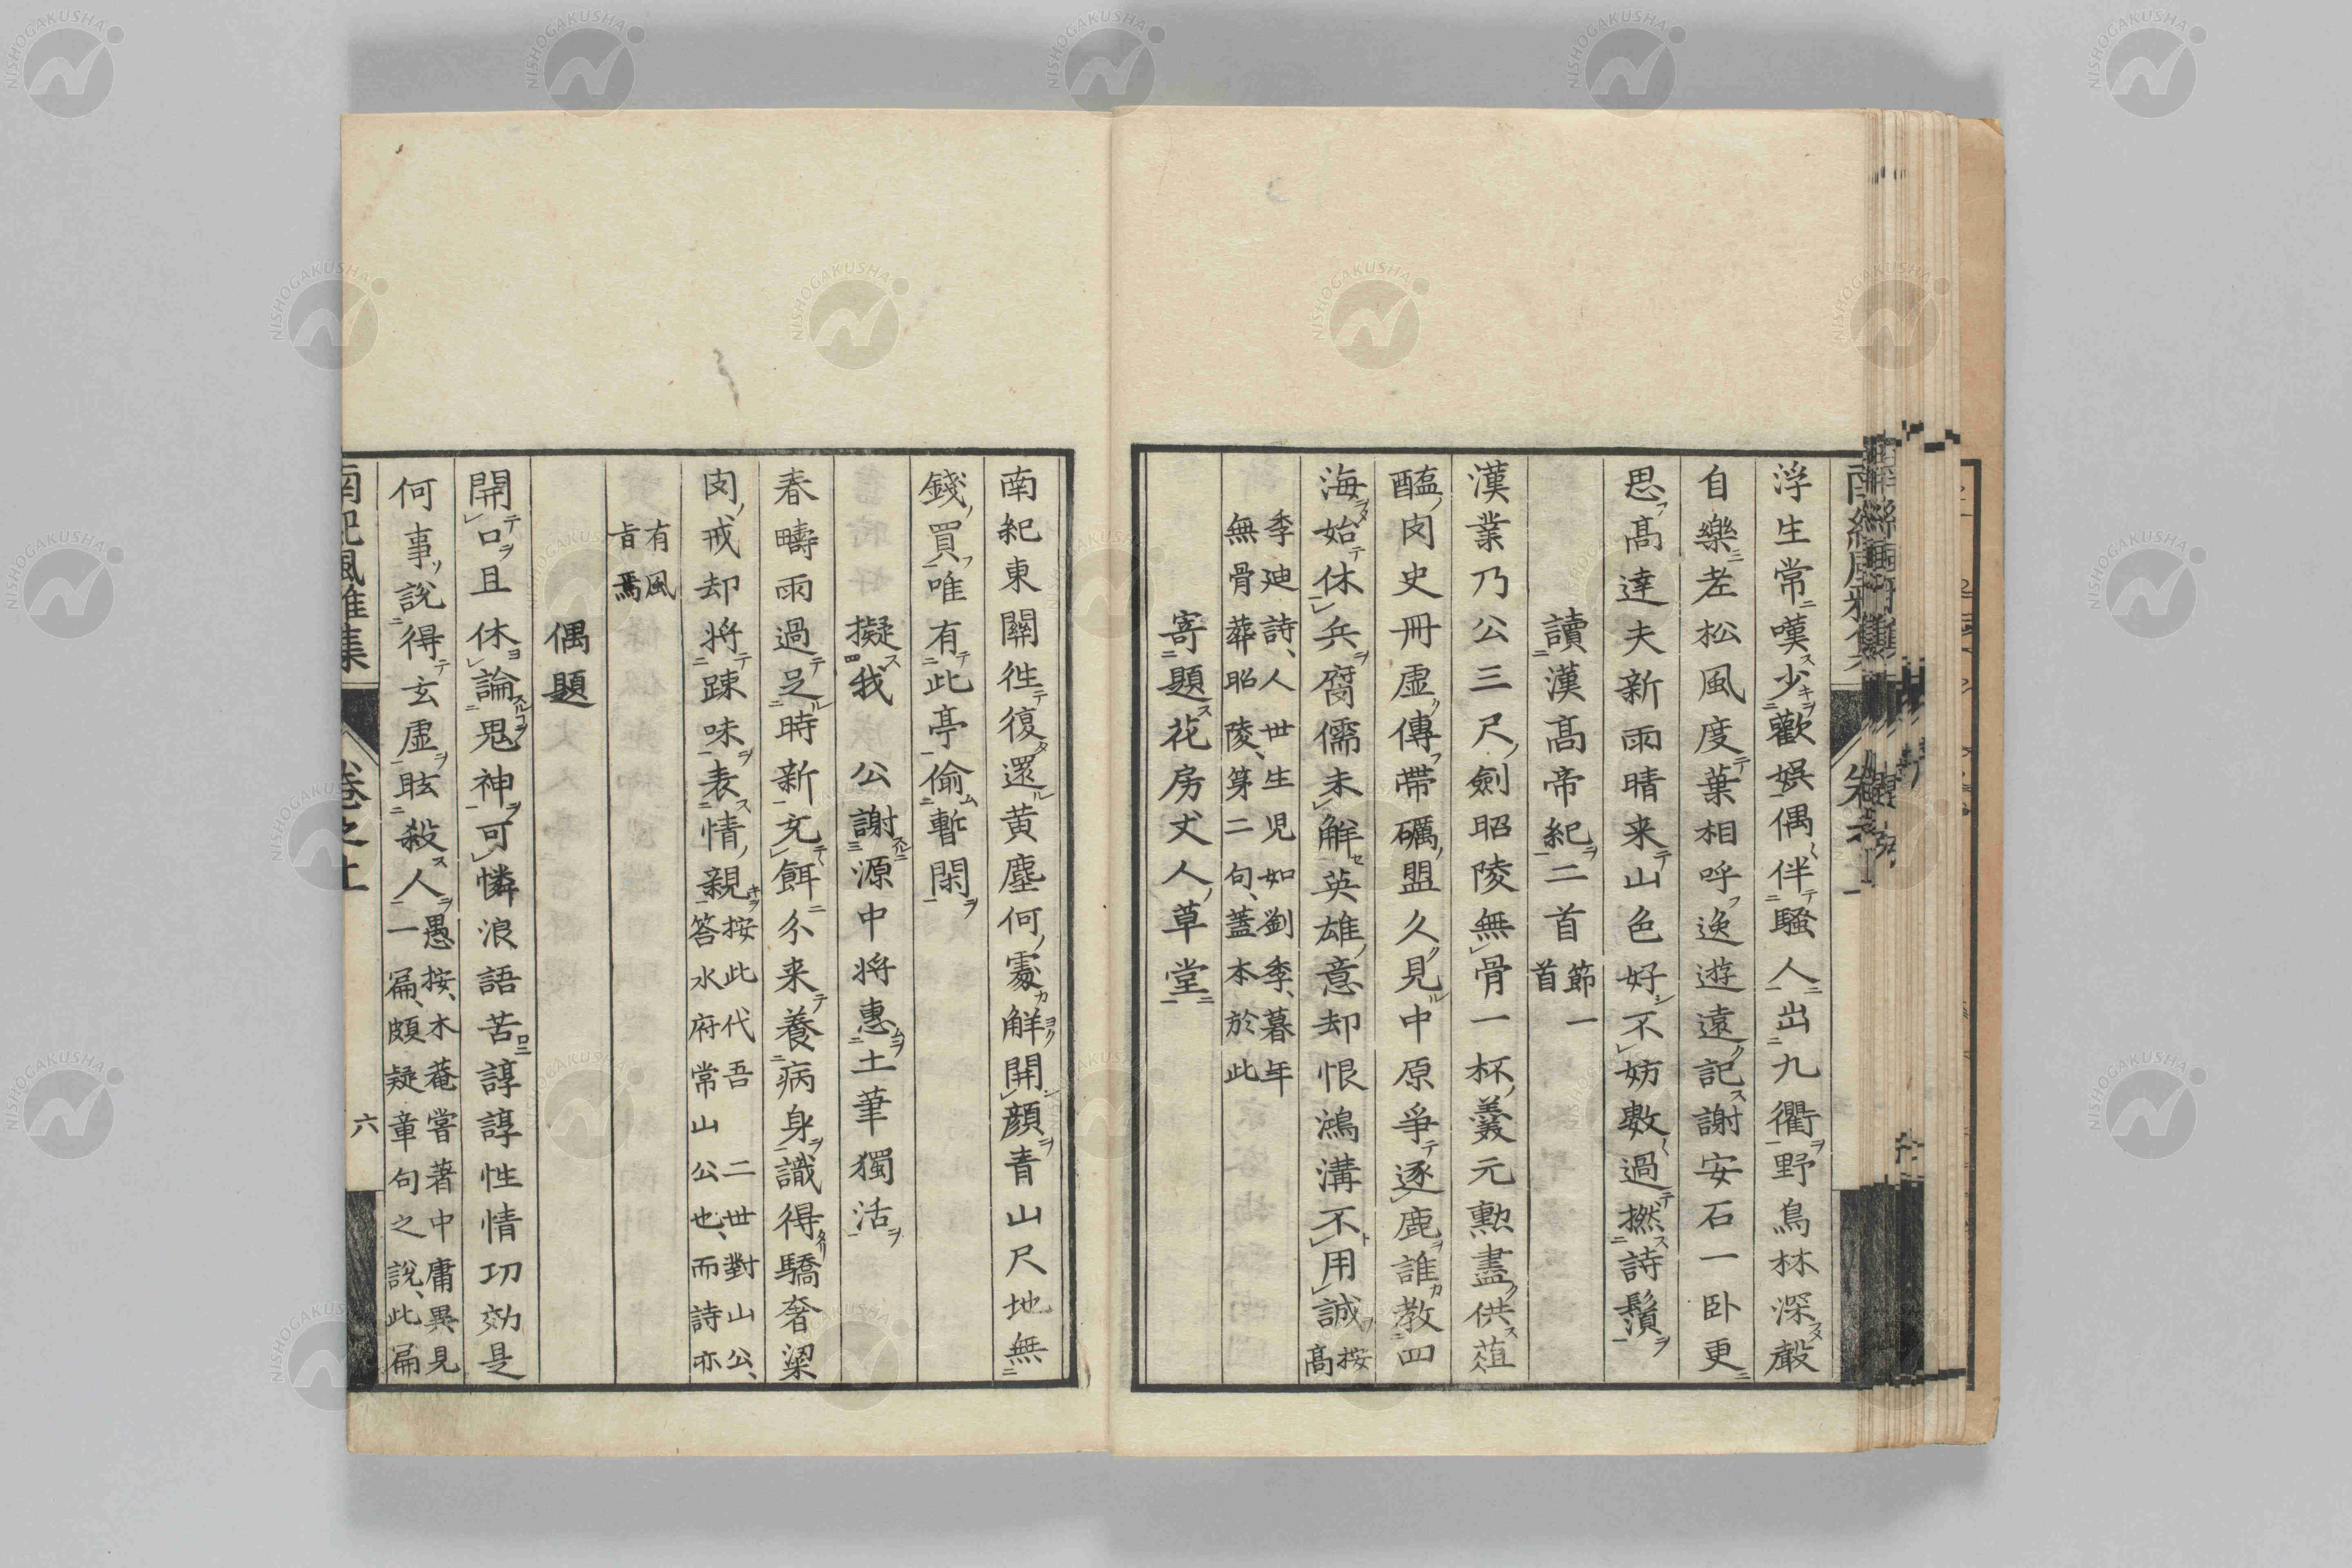 浮生常嘆少歡娯偶伴騷人出九衢野鳥林深聲
自樂老松風度葉相呼逸遊遠記謝安石一卧更
思髙達夫新雨晴来山色好不妨數過撚詩鬚
讀漢髙帝紀二首 節一首
漢業乃公三尺劍昭陵無骨一杯羹元勲盡供葅
醢肉史冊虚傳帶礪盟久見中原爭逐鹿誰教四
海始休兵腐儒未解英雄意却恨鴻溝不用誠 按髙
季迪詩、人世生児如劉季、暮年
無骨葬昭陵、第二句、蓋本於此
寄題花房丈人草堂
南紀東關徃復還黄塵何處解開顔青山尺地無
錢買唯有此亭偷暫閑
擬我 公謝源中将惠土筆獨活
春疇雨過足時新充餌分来養病身識得驕奢粱
肉戒却将踈味表情親 按此代吾 二世對山公、
答水府常山公也、而詩亦
有風
旨焉
偶題
開口且休論鬼神可憐浪語苦諄諄性情功効是
何事說得玄虚眩殺人 愚按、木菴嘗著中庸異見
一扁、頗疑章句之說、此扁
南紀風雅集 卷之上 六
NISHOGAKUSHA